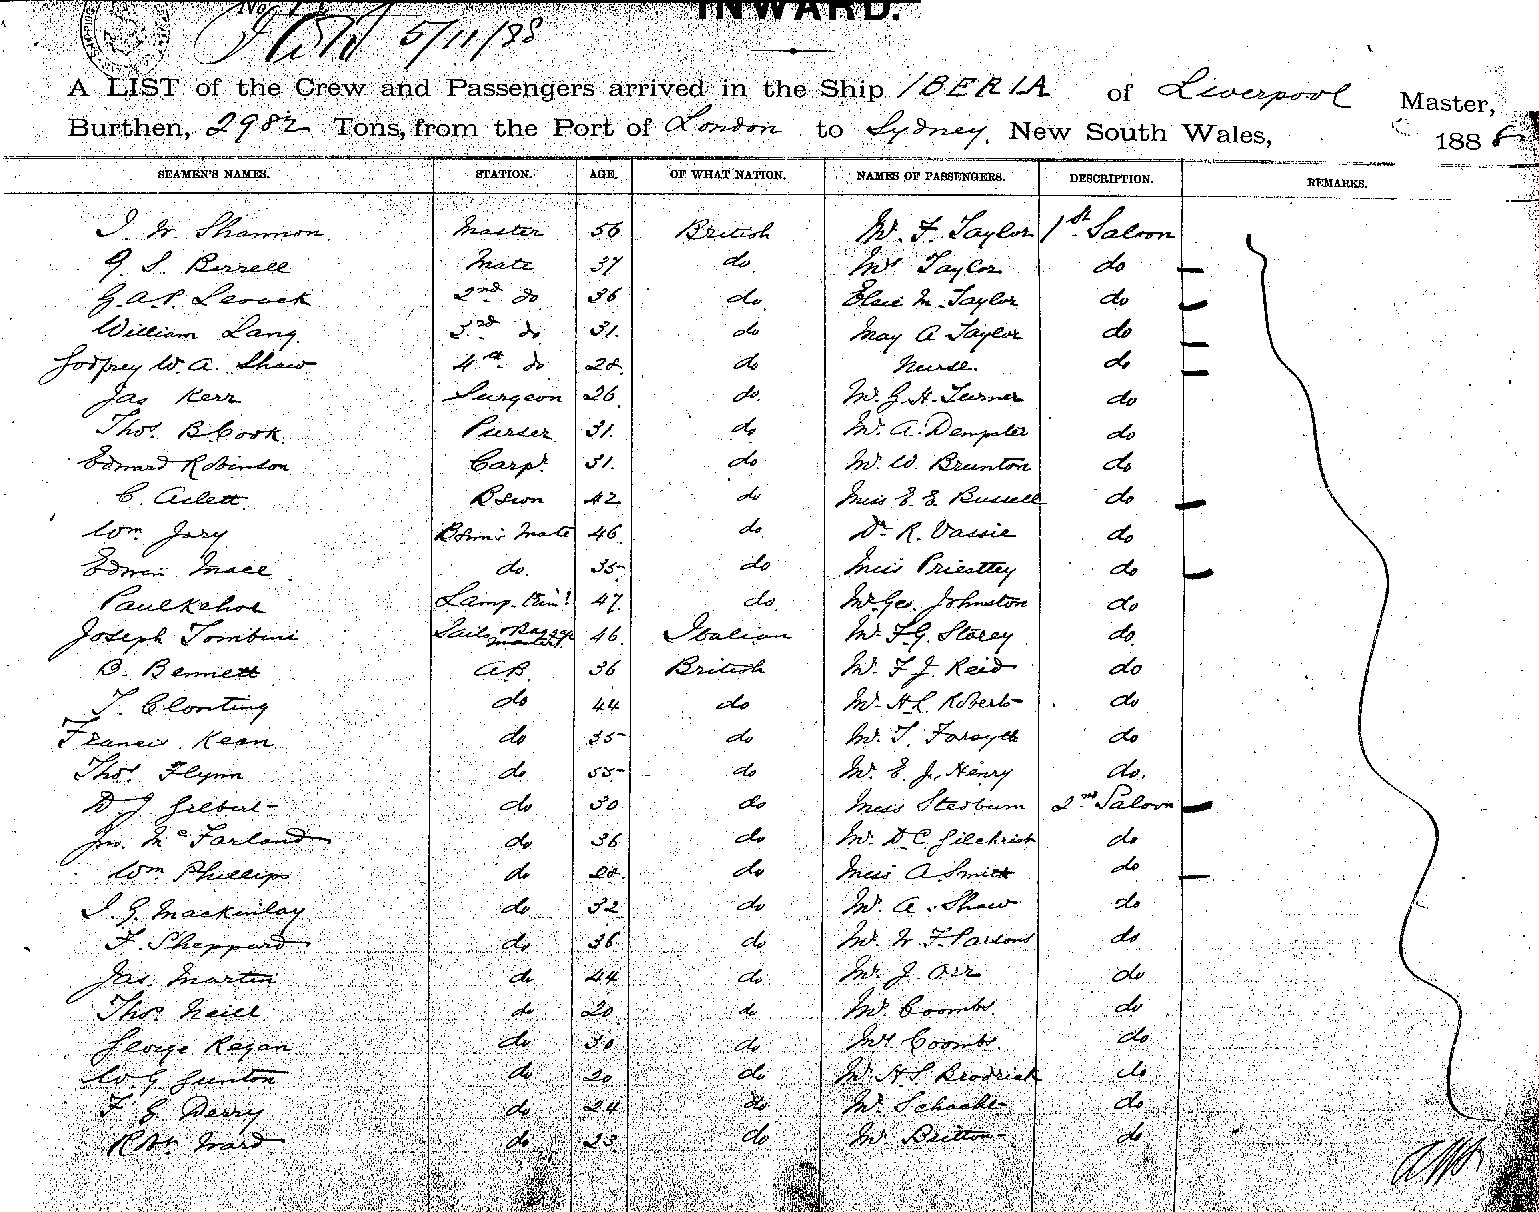 No.
INWARD.
5/11/88
A LIST of the Crew and Passengers arrived in the Ship IBERIA of Liverpool Master,
Burthen, 2982 Tons, from the Port of London to Sydney, New South Wales, 1888
SEAMEN'S NAMES. STATION. AGE. OF WHAT NATION. NAMES OF PASSENGERS. DESCRIPTION. REMARKS.
J. W. Shannon Master 56 British Mr. F. Taylor 1st Saloon
G S. Berrell Mate 37 do Mrs Taylor do
G.A.P. Leacock 2nd do 36 do Elsie M. Taylor do
William Lang 3rd do 31. do May A Taylor do
Godfrey W. A. Shaw 4th do 28. do Nurse. do
Jas Kerr Surgeon 26. do. Mr. G. H. Turner do
Thos. B Cook Purser 31. do Mr. A. Dempster do
Edward Robinson Carpr. 31. do Mr. W. Brunton do
C. Aslett Bswn 42 do Miss E. E. Bussell do
Wm. Jary Bswn's Mate 46. do Dr. R. Vassie do
Edwin Mace do. 35 do Miss Priestley do
Paul Kehoe Lamp. Trimr. 47. do Mr. Geo. Johnston do
Joseph Tombini Sails & Bagge Master 46 Italian Mr. F. G. Storey do
B. Bennett AB 36 British Mr. F. J. Reid do
T. Clonting do 44 do Mr. H. L. Roberts do
Francis Kean do 35 do Mr. T. Forsyth do
Thos. Flynn do 55 do Mr. E. J. Henry do.
D J Gilbert do 30 do Miss Stedburn 2nd Saloon
Jno. McFarland do 36 do Mr. D. C. Gilchrist do
Wm. Phillips do 28. do Miss A Smith do
J. G. Mackinlay do 32 do Mr. A. Shaw do
F. Sheppard do 36 do Mr. W. F. Parsons do
Jas. Martin do 44 do Mr. J. Orr do
Thos. Neill do 20 do Mr. Coombs. do
George Regan do 30 do Mrs Coombs. do
W. G Gunton do 20 do Mr. H. S. Brodrick do
F E Derry do 24 do Mr. Schacht do
R. Wm. Ward do 23 do Mr. Britton do